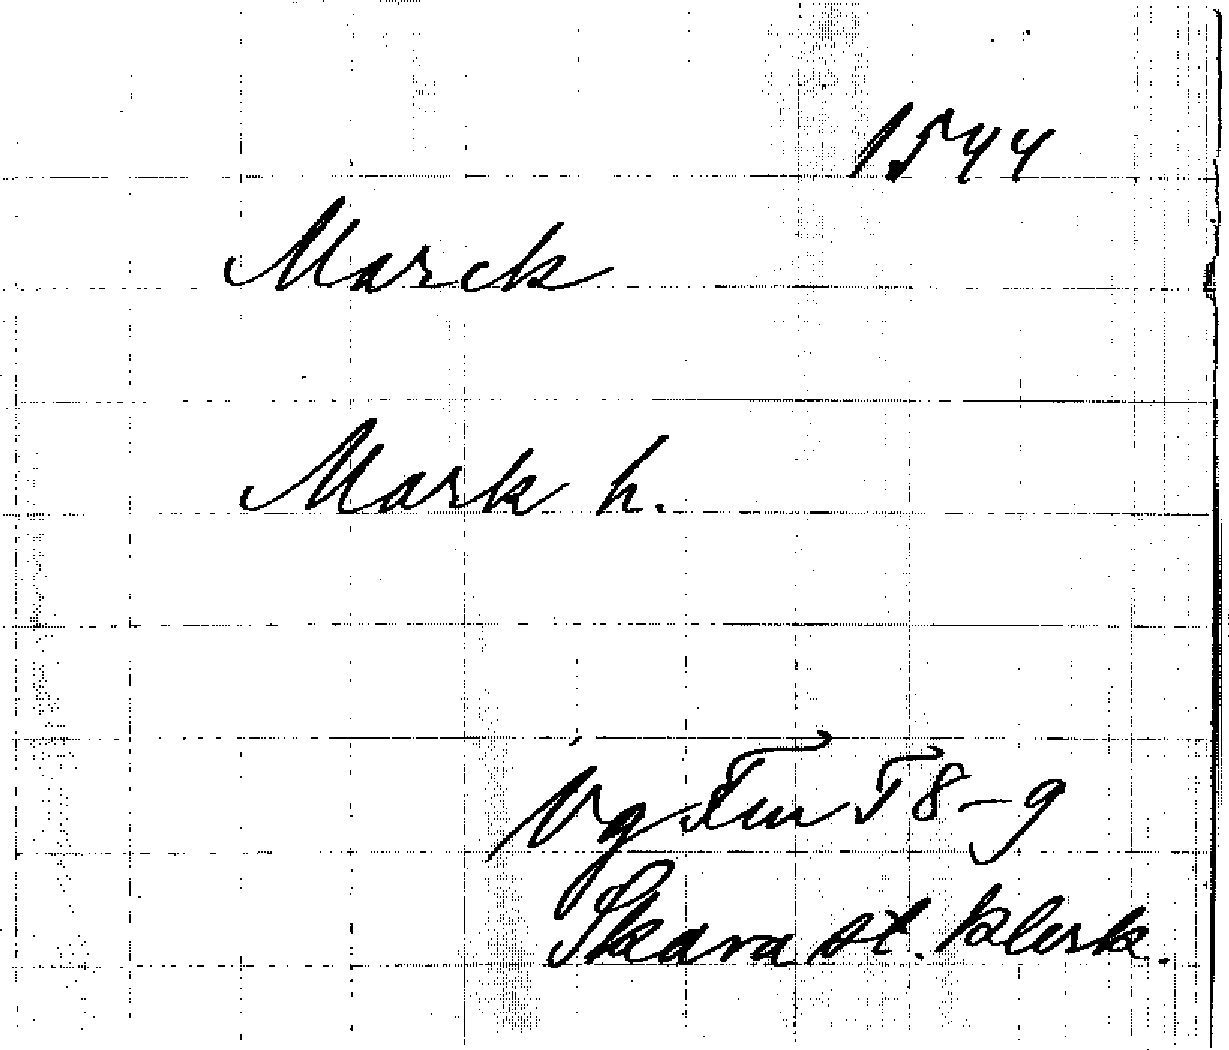 1544
Marck
Mark h.
Vg Fm 58-9
Skara st. klerk.